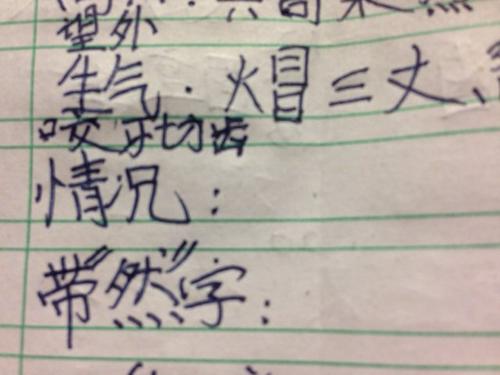 望外
生气·火冒三丈、
咬牙切齿
情况：
带“然”字：